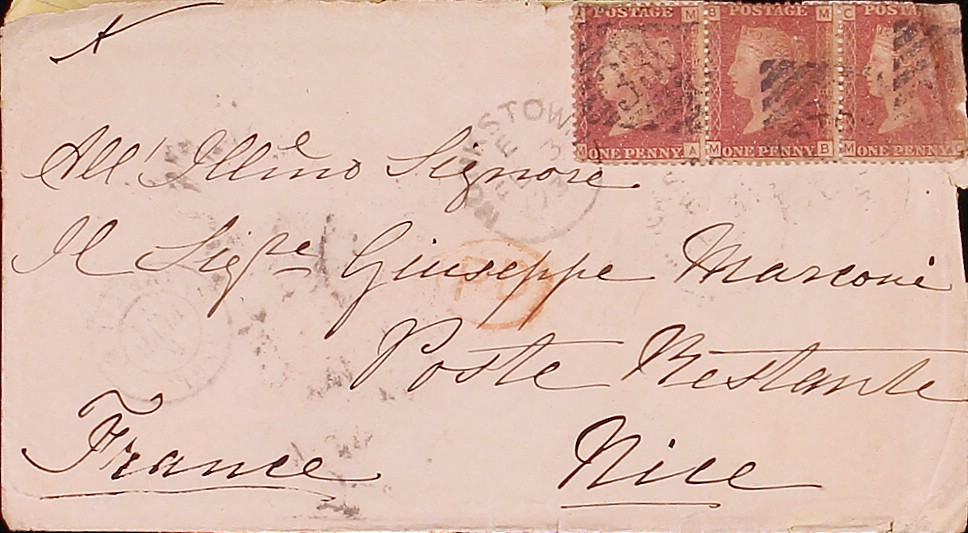 A M B M C M
POSTAGE POSTAGE POSTAGE
M A M B M C
ONE PENNY ONE PENNY ONE PENNY
PD
All' Illmo Signore
Il Sigre Giuseppe Marconi
Poste Restante
France Nice